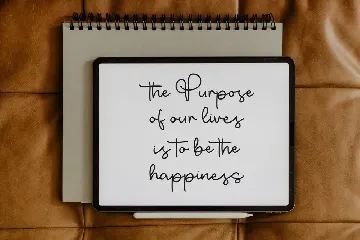 the Purpose
of our lives
is to be the
happiness